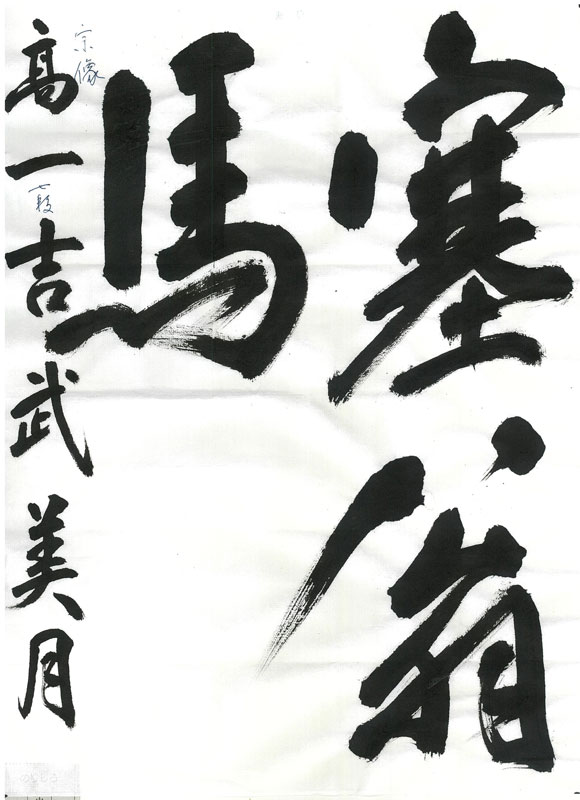 塞翁
馬
高一吉武美月
宗像
七段